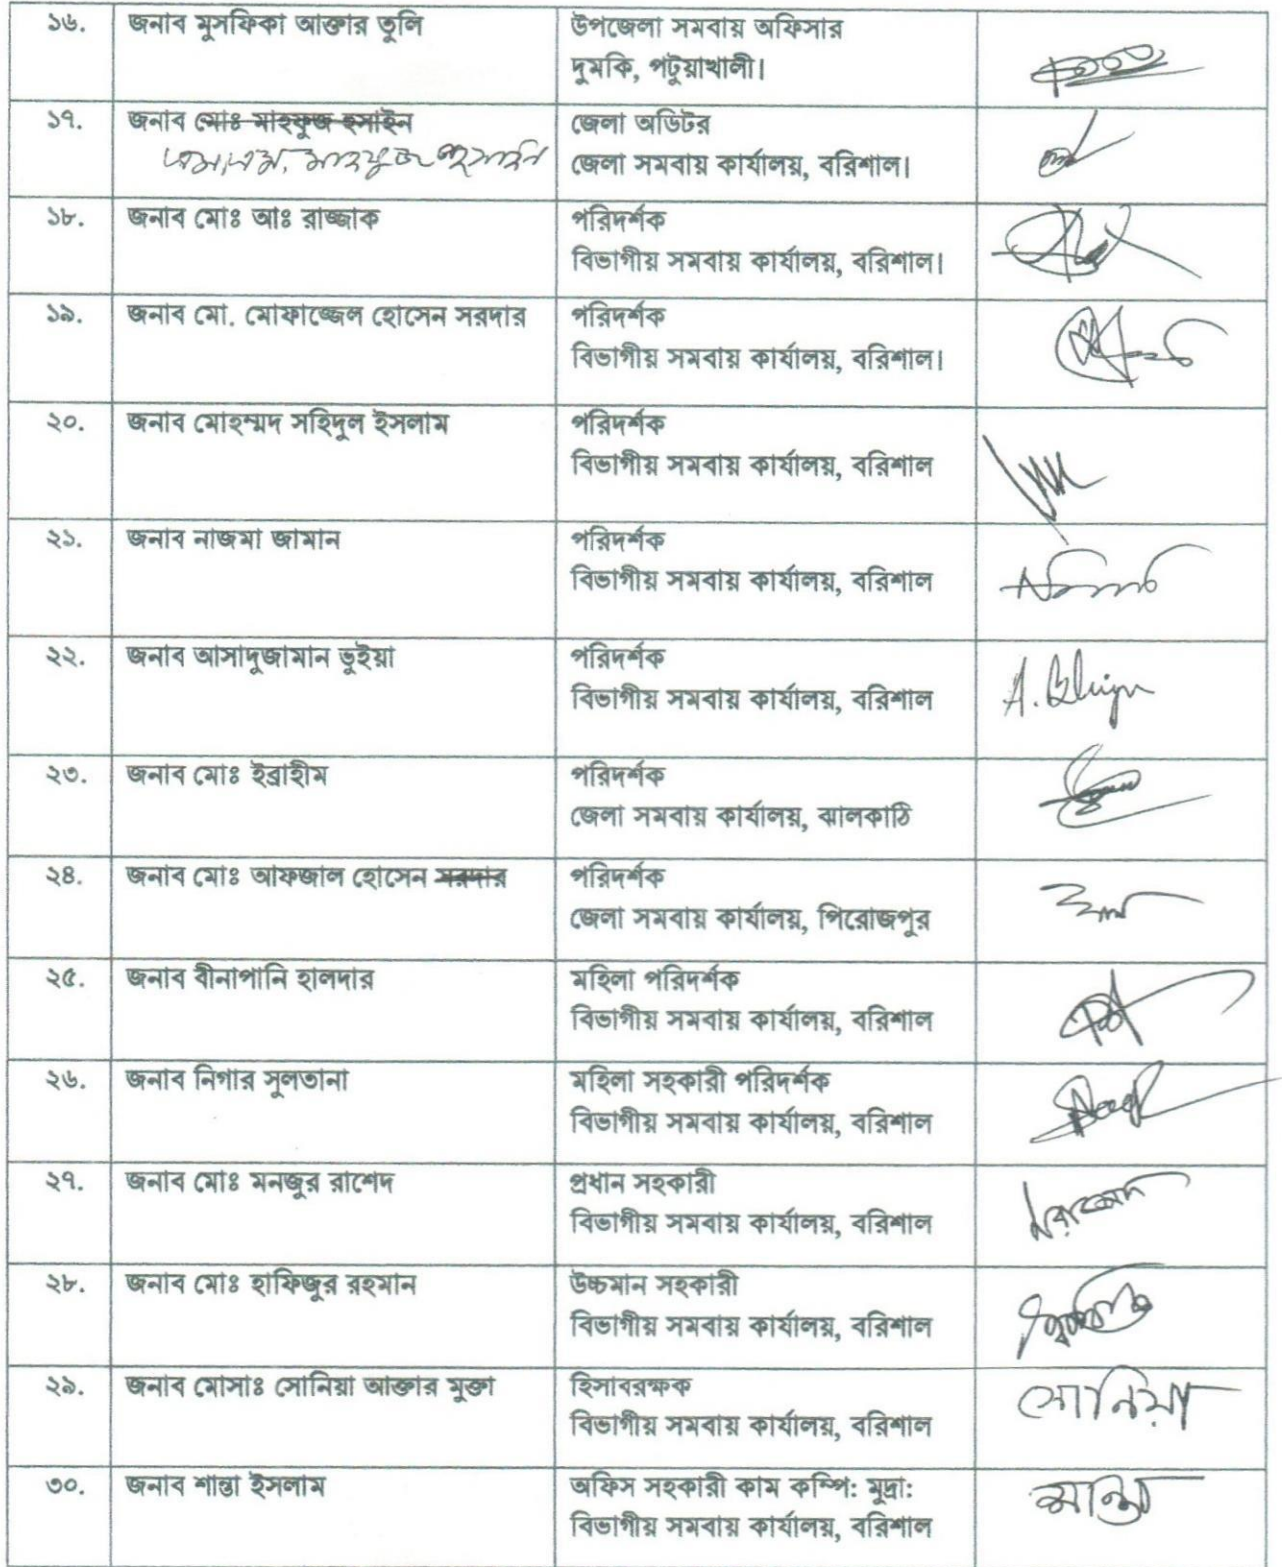 ১৬. জনাব মুসফিকা আক্তার তুলি উপজেলা সমবায় অফিসার
দুমকি, পটুয়াখালী।
১৭. জনাব মোঃ মাহফুজ হুসাইন জেলা অডিটর
জেলা সমবায় কার্যালয়, বরিশাল।
১৮. জনাব মোঃ আঃ রাজ্জাক পরিদর্শক
বিভাগীয় সমবায় কার্যালয়, বরিশাল।
১৯. জনাব মো. মোফাজ্জেল হোসেন সরদার পরিদর্শক
বিভাগীয় সমবায় কার্যালয়, বরিশাল।
২০. জনাব মোহম্মদ সহিদুল ইসলাম পরিদর্শক
বিভাগীয় সমবায় কার্যালয়, বরিশাল
২১. জনাব নাজমা জামান পরিদর্শক
বিভাগীয় সমবায় কার্যালয়, বরিশাল
২২. জনাব আসাদুজামান ভুইয়া পরিদর্শক
বিভাগীয় সমবায় কার্যালয়, বরিশাল
২৩. জনাব মোঃ ইব্রাহীম পরিদর্শক
জেলা সমবায় কার্যালয়, ঝালকাঠি
২৪. জনাব মোঃ আফজাল হোসেন সরদার পরিদর্শক
জেলা সমবায় কার্যালয়, পিরোজপুর
২৫. জনাব বীনাপানি হালদার মহিলা পরিদর্শক
বিভাগীয় সমবায় কার্যালয়, বরিশাল
২৬. জনাব নিগার সুলতানা মহিলা সহকারী পরিদর্শক
বিভাগীয় সমবায় কার্যালয়, বরিশাল
২৭. জনাব মোঃ মনজুর রাশেদ প্রধান সহকারী
বিভাগীয় সমবায় কার্যালয়, বরিশাল
২৮. জনাব মোঃ হাফিজুর রহমান উচ্চমান সহকারী
বিভাগীয় সমবায় কার্যালয়, বরিশাল
২৯. জনাব মোসাঃ সোনিয়া আক্তার মুক্তা হিসাবরক্ষক সোনিয়া
বিভাগীয় সমবায় কার্যালয়, বরিশাল
৩০. জনাব শান্তা ইসলাম অফিস সহকারী কাম কম্পি: মুদ্রা: শান্তা
বিভাগীয় সমবায় কার্যালয়, বরিশাল